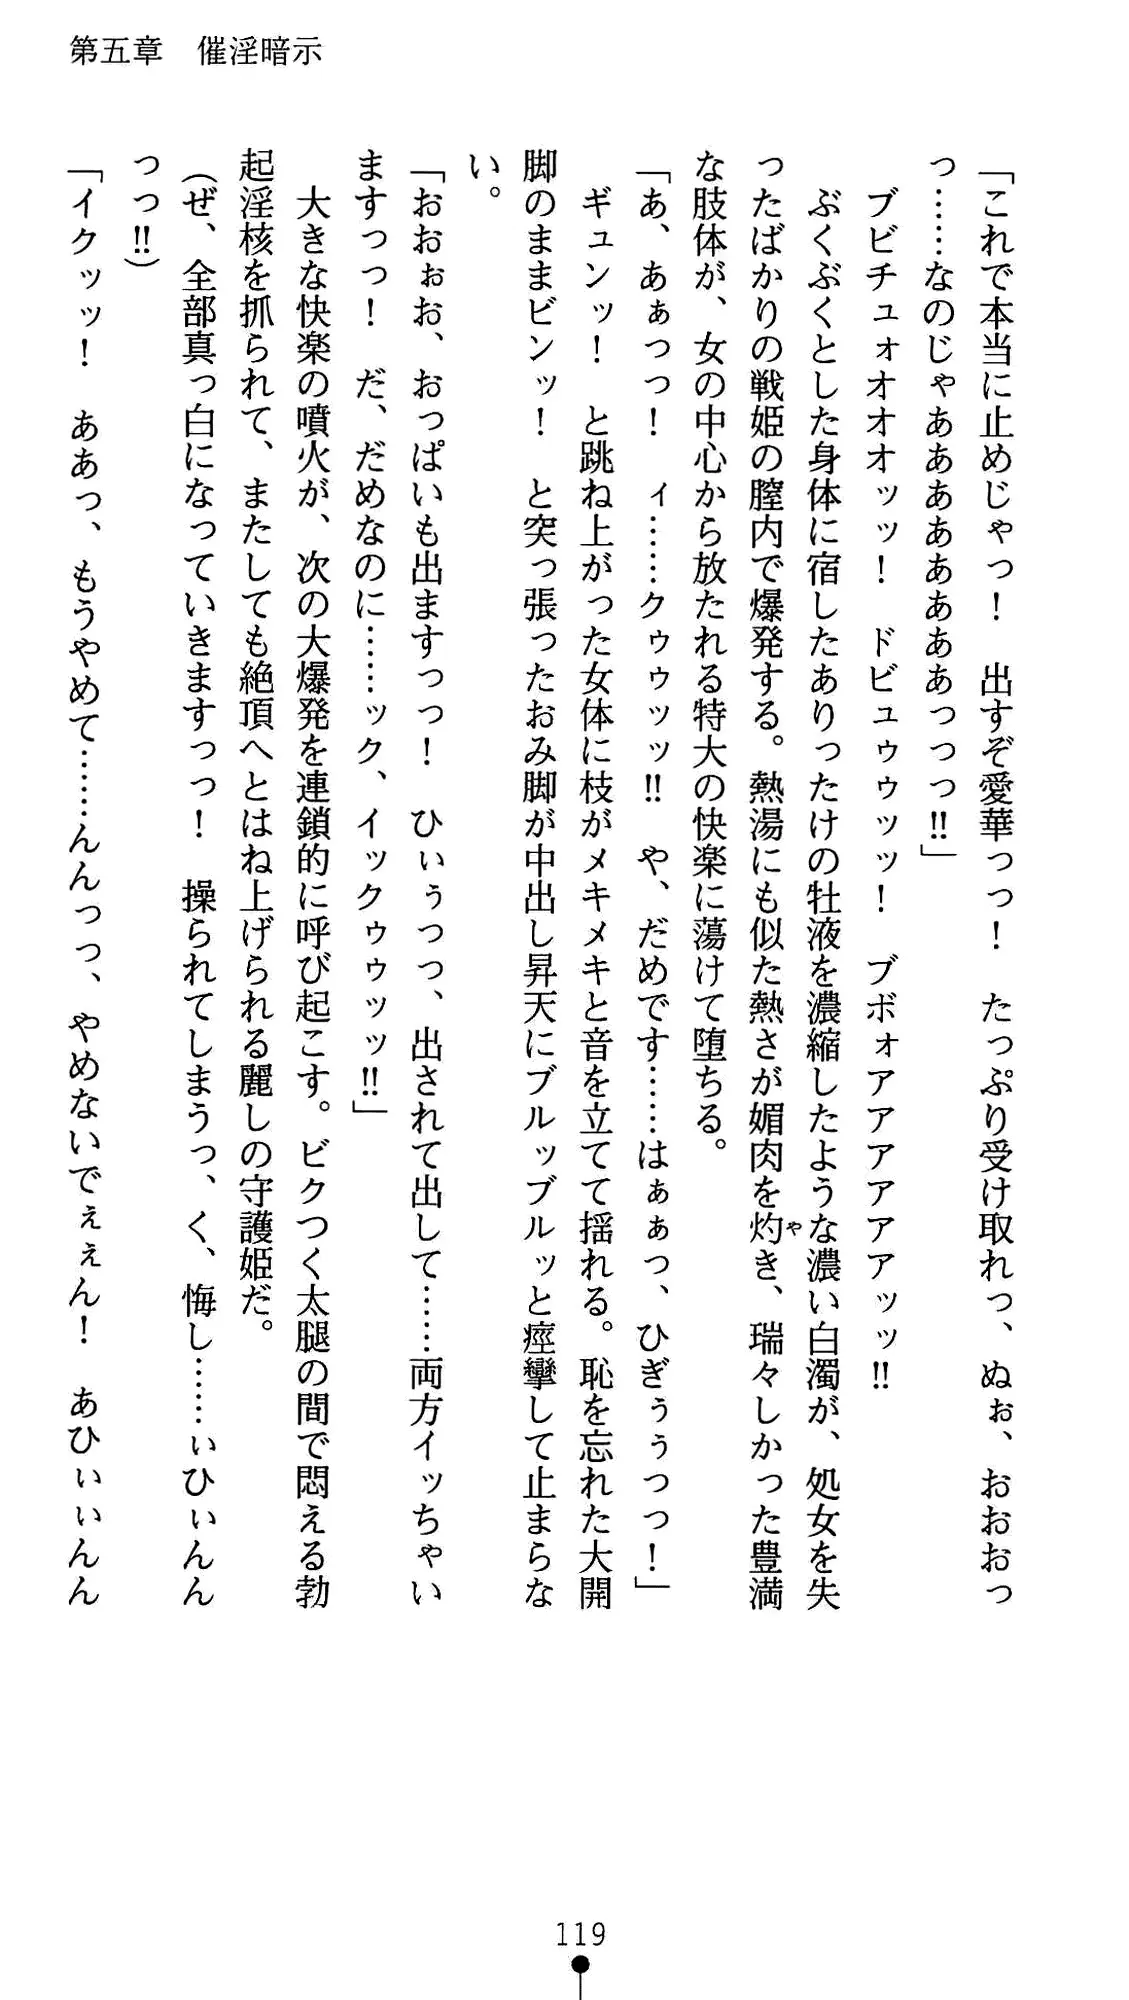 第五章　催淫暗示
「これで本当に止めじゃっ！　出すぞ愛華っっ！　たっぷり受け取れっ、ぬぉ、おおおっ
っ……なのじゃああああああああっっっ‼」
　ブビチュォオオオッッ！　ドビュゥゥッッ！　ブボォアアアアアアッッ‼
　ぶくぶくとした身体に宿したありったけの牡液を濃縮したような濃い白濁が、処女を失
ったばかりの戦姫の膣内で爆発する。熱湯にも似た熱さが媚肉を灼き、瑞々しかった豊満
や
な肢体が、女の中心から放たれる特大の快楽に蕩けて堕ちる。
「あ、あぁっっ！　ィ……クゥゥッッ‼　や、だめです……はぁぁっ、ひぎぅぅっっ！」
　ギュンッ！　と跳ね上がった女体に枝がメキメキと音を立てて揺れる。恥を忘れた大開
脚のままビンッ！　と突っ張ったおみ脚が中出し昇天にブルッブルッと痙攣して止まらな
い。
「おおぉお、おっぱいも出ますっっ！　ひぃぅっっ、出されて出して……両方イッちゃい
ますっっ！　だ、だめなのに……ック、イックゥゥッッ‼」
　大きな快楽の噴火が、次の大爆発を連鎖的に呼び起こす。ビクつく太腿の間で悶える勃
起淫核を抓られて、またしても絶頂へとはね上げられる麗しの守護姫だ。
（ぜ、全部真っ白になっていきますっっ！　操られてしまうっ、く、悔し……ぃひぃんん
っっ‼）
「イクッッ！　ああっ、もうやめて……んんっっ、やめないでぇぇん！　あひぃぃんん
119